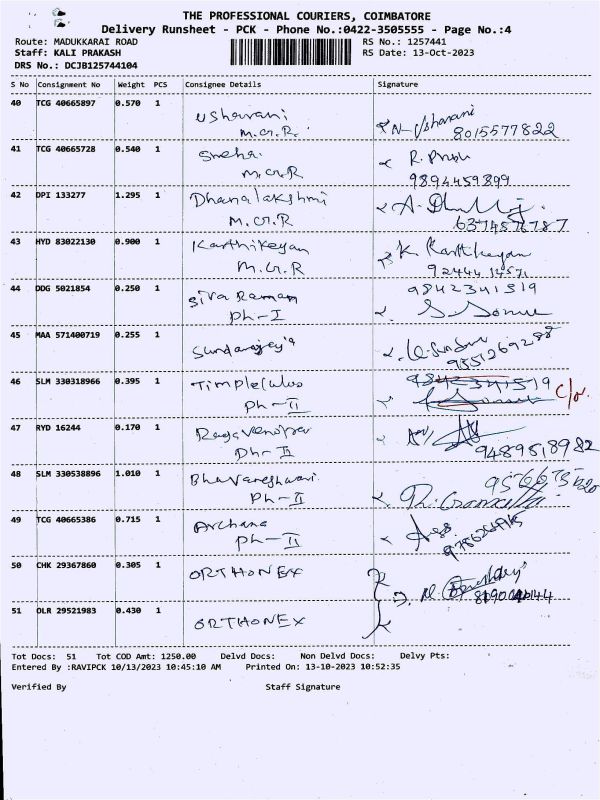 THE PROFESSIONAL COURIERS, COIMBATORE
Delivery Runsheet - PCK - Phone No.:0422-3505555 - Page No.:4
Route: MADUKKARAI ROAD RS No.: 1257441
Staff: KALI PRAKASH RS Date: 13-Oct-2023
DRS No.: DCJB125744104
S No Consignment No Weight PCS Consignee Details Signature
40 TCG 40665897 0.570 1 Usharani
M.G.R. N. Usharani
8015577822
41 TCG 40665728 0.540 1 Sneha
M.G.R R.
9894459899
42 DPI 133277 1.295 1 Dhanalakshmi
M.G.R A.
43 HYD 83022130 0.900 1 Karthikeyan
M.G.R K. Karthikeyan
9244414571
44 DDG 5021854 0.250 1 Siva Raman 9842341519
Ph-I
45 MAA 571400719 0.255 1
9551269288
46 SLM 330318966 0.395 1 9842341519
Ph-II
47 RYD 16244 0.170 1
Ph-II 9489518982
48 SLM 330538896 1.010 1 Bhavaneshwari
Ph-II
49 TCG 40665386 0.715 1 Archana
Ph-II
50 CHK 29367860 0.305 1 ORTHONEX
51 OLR 29521983 0.430 1
ORTHONEX
Tot Docs: 51 Tot COD Amt: 1250.00 Delvd Docs: Non Delvd Docs: Delvy Pts:
Entered By :RAVIPCK 10/13/2023 10:45:10 AM Printed On: 13-10-2023 10:52:35
Verified By Staff Signature